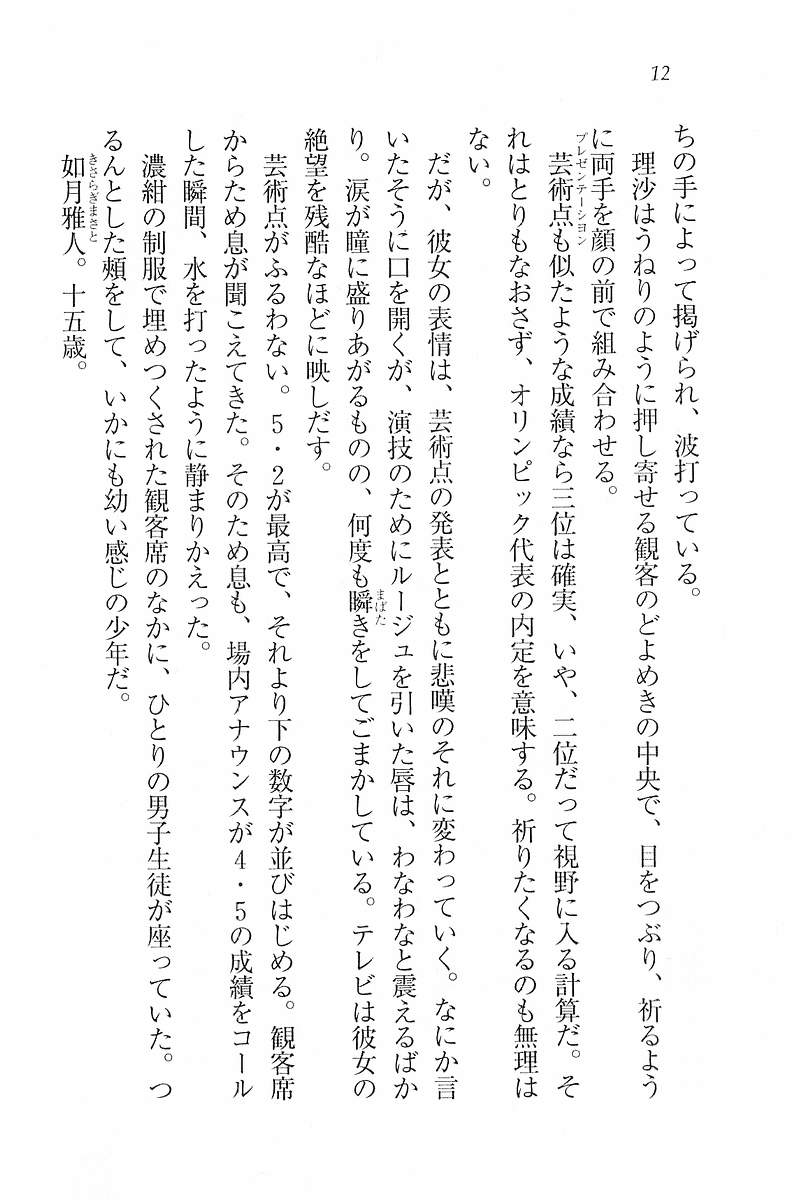 12
ちの手によって掲げられ、波打っている。
理沙はうねりのように押し寄せる観客のどよめきの中央で、目をつぶり、祈るよう
に両手を顔の前で組み合わせる。
芸術点も似たような成績なら三位は確実、いや、二位だって視野に入る計算だ。そ
プレゼンテーション
れはとりもなおさず、オリンピック代表の内定を意味する。祈りたくなるのも無理は
ない。
だが、彼女の表情は、芸術点の発表とともに悲嘆のそれに変わっていく。なにか言
いたそうに口を開くが、演技のためにルージュを引いた唇は、わなわなと震えるばか
り。涙が瞳に盛りあがるものの、何度も瞬きをしてごまかしている。テレビは彼女の
まばた
絶望を残酷なほどに映しだす。
芸術点がふるわない。5・2が最高で、それより下の数字が並びはじめる。観客席
からため息が聞こえてきた。そのため息も、場内アナウンスが4・5の成績をコール
した瞬間、水を打ったように静まりかえった。
濃紺の制服で埋めつくされた観客席のなかに、ひとりの男子生徒が座っていた。つ
るんとした頰をして、いかにも幼い感じの少年だ。
如月雅人。十五歳。
きさらぎまさと